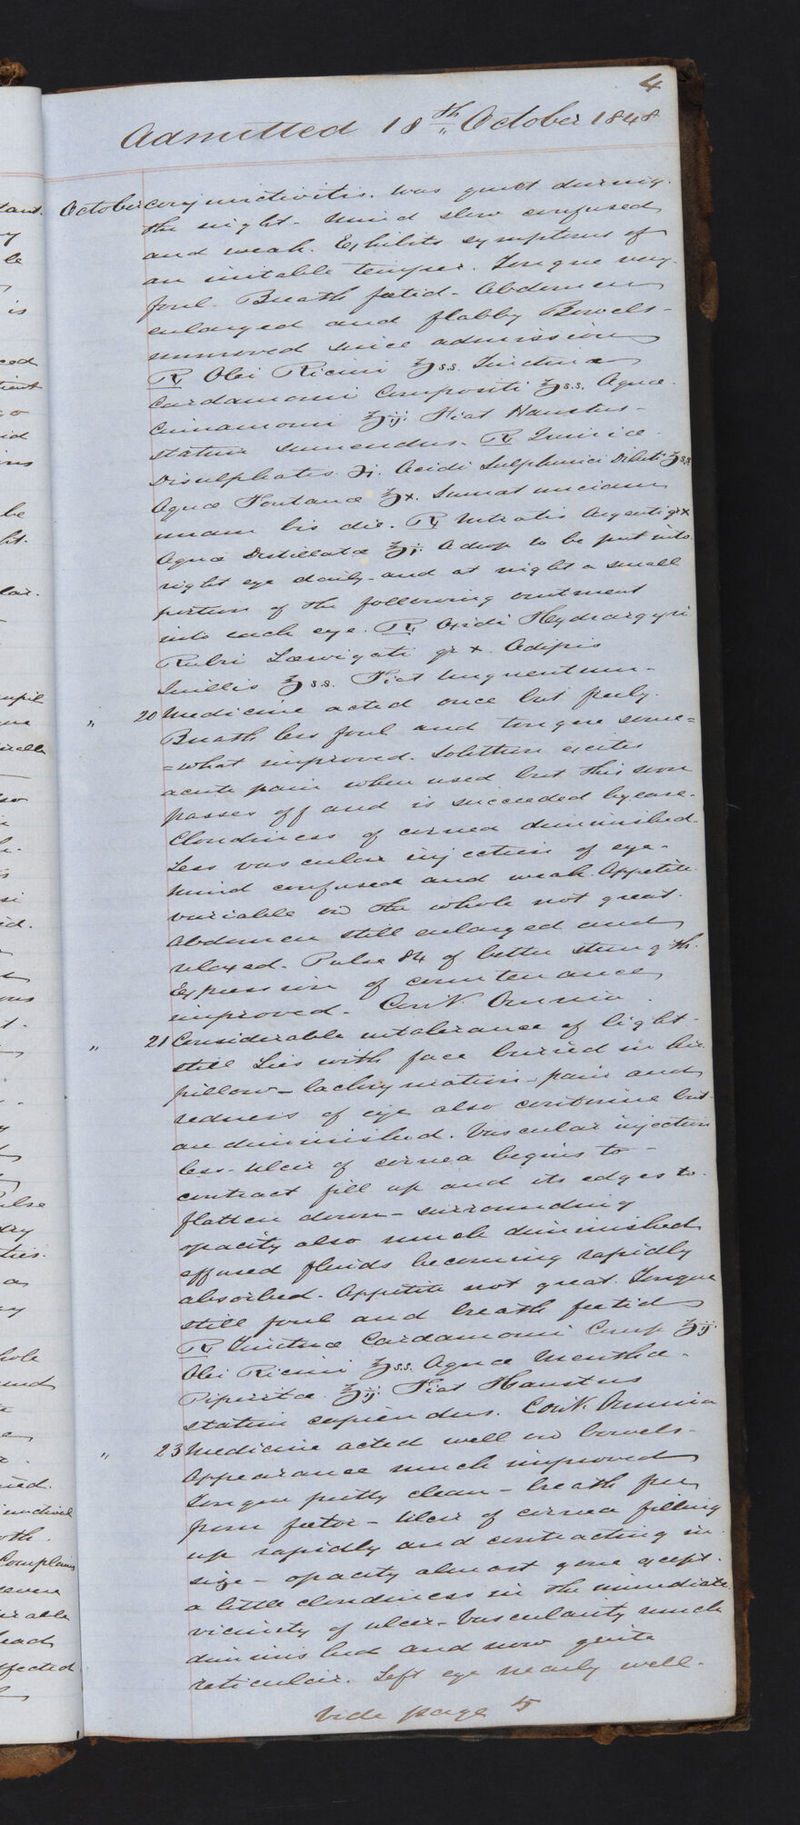 4
Admitted 18th October 1848
October conjunctivitis. Was quiet during
the night. Mind slow confused
and weak. Exhibits symptoms of
an irritable temper. Tongue very
foul. Breath foetid. Abdomen
enlarged and flabby Bowels
unmoved since admission
℞ Olei Ricini ℥s.s. Tinctura
Cardamomi Compositi ℥s.s. Aqua
Cinnamomi ℥ij. Fiat Haustus
statim sumendus. ℞ Quinice
Disulphates ℈i. Acidi Sulphurici Diluti ʒs.s
Aqua Fontana ℥x. Sumat unciam
unam bis die. ℞ Nitratis Argenti gr x
Aqua Distillata ℥j. A drop to be put into
right eye daily and at night a small
portion of the following ointment
into each eye. ℞ Oxidi Hydrargyri
Rubri Laevigati gr x. Adipis
Suillis ℥s.s. Fiat Unguentum
" 20 Medicine acted once but freely.
Breath less foul and tongue some=
=what improved. Solution excites
acute pain when used but this soon
passes off and is succeeded by ease.
Cloudiness of cornea diminished.
Less vascular injection of eye.
Mind confused and weak. Appetite
variable on the whole not great.
Abdomen still enlarged and
relaxed. Pulse 84 of better strength.
Expression of countenance
improved. Cont. Omnia.
" 21 Considerable intolerance of light
still Lies with face buried in his
pillow - lachrymation - pain and
redness of eye also continue but
are diminished. Vascular injection
less. Ulcer of cornea begins to
contract fill up and its edges to
flatten down - surrounding
opacity also much diminished
effused fluids becoming rapidly
absorbed. Appetite not great. Tongue
still foul and breath foetid
℞ Tinctua Cardamomi Comp ʒij.
Olei Ricini ℥s.s. Aqua Mentha
Piperita ℥ij. Fiat Haustus
statim capiendus. Cont. Omnia
" 23 Medicine acted well on bowels.
Appearance much improved
Tongue pretty clean - breath free
from foetor - Ulcer of cornea filling
up rapidly and contracting in
size - opacity almost gone except
a little cloudiness in the immediate
vicinity of ulcer. Vascularity much
diminished and now quite
reticular. Left eye nearly well.
Vide page 5